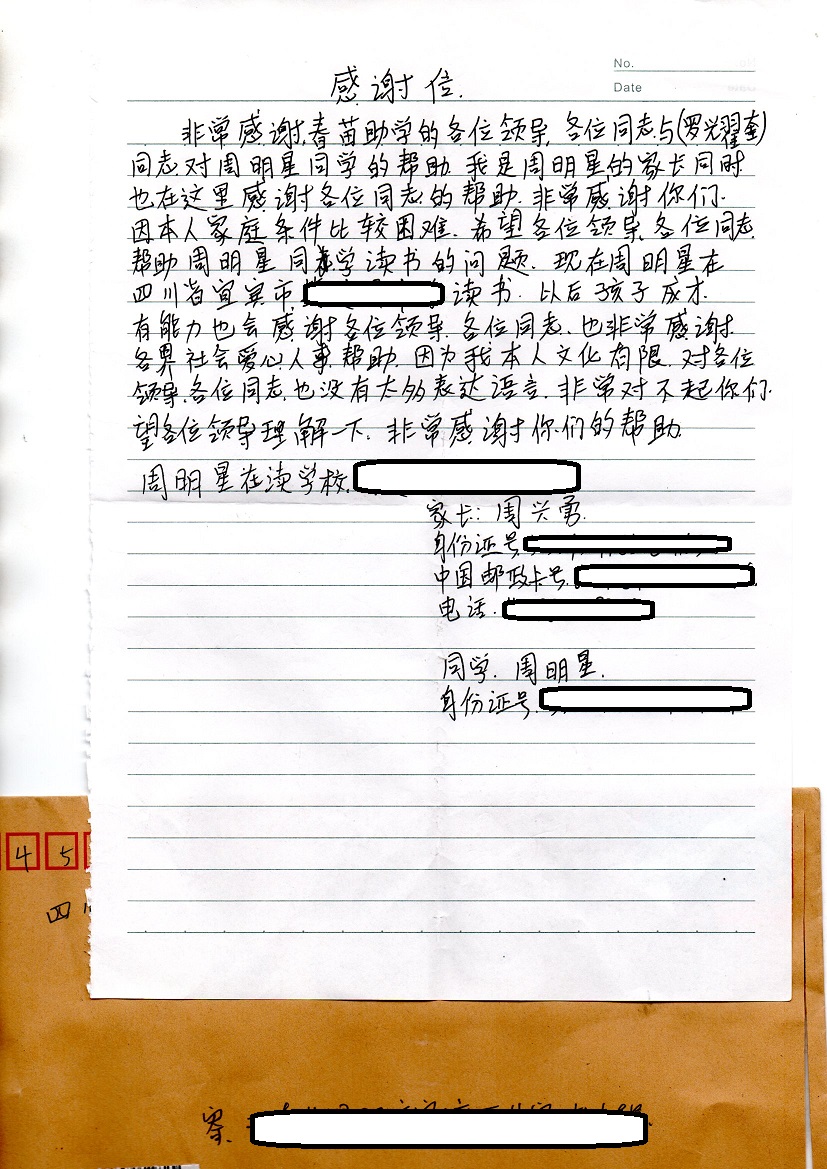 No.
Date
感谢信.
非常感谢,春苗助学的各位领导,各位同志与(罗光翟奎)
同志对周明星同学的帮助.我是周明星的家长同时
也在这里感谢各位同志的帮助.非常感谢你们.
因本人家庭条件比较困难.希望各位领导,各位同志.
帮助周明星同学读书的问题.现在周明星在
四川省宜宾市 读书.以后孩子成才.
有能力也会感谢各位领导.各位同志.也非常感谢.
各界社会爱心人事.帮助.因为我本人文化有限.对各位
领导.各位同志,也没有太多表达语言.非常对不起你们.
望各位领导理解一下.非常感谢你们的帮助.
周明星在读学校.
家长:周兴勇.
身份证号.
中国邮政卡号.
电话.
同学.周明星.
身份证号.
4 5
四川
寄.